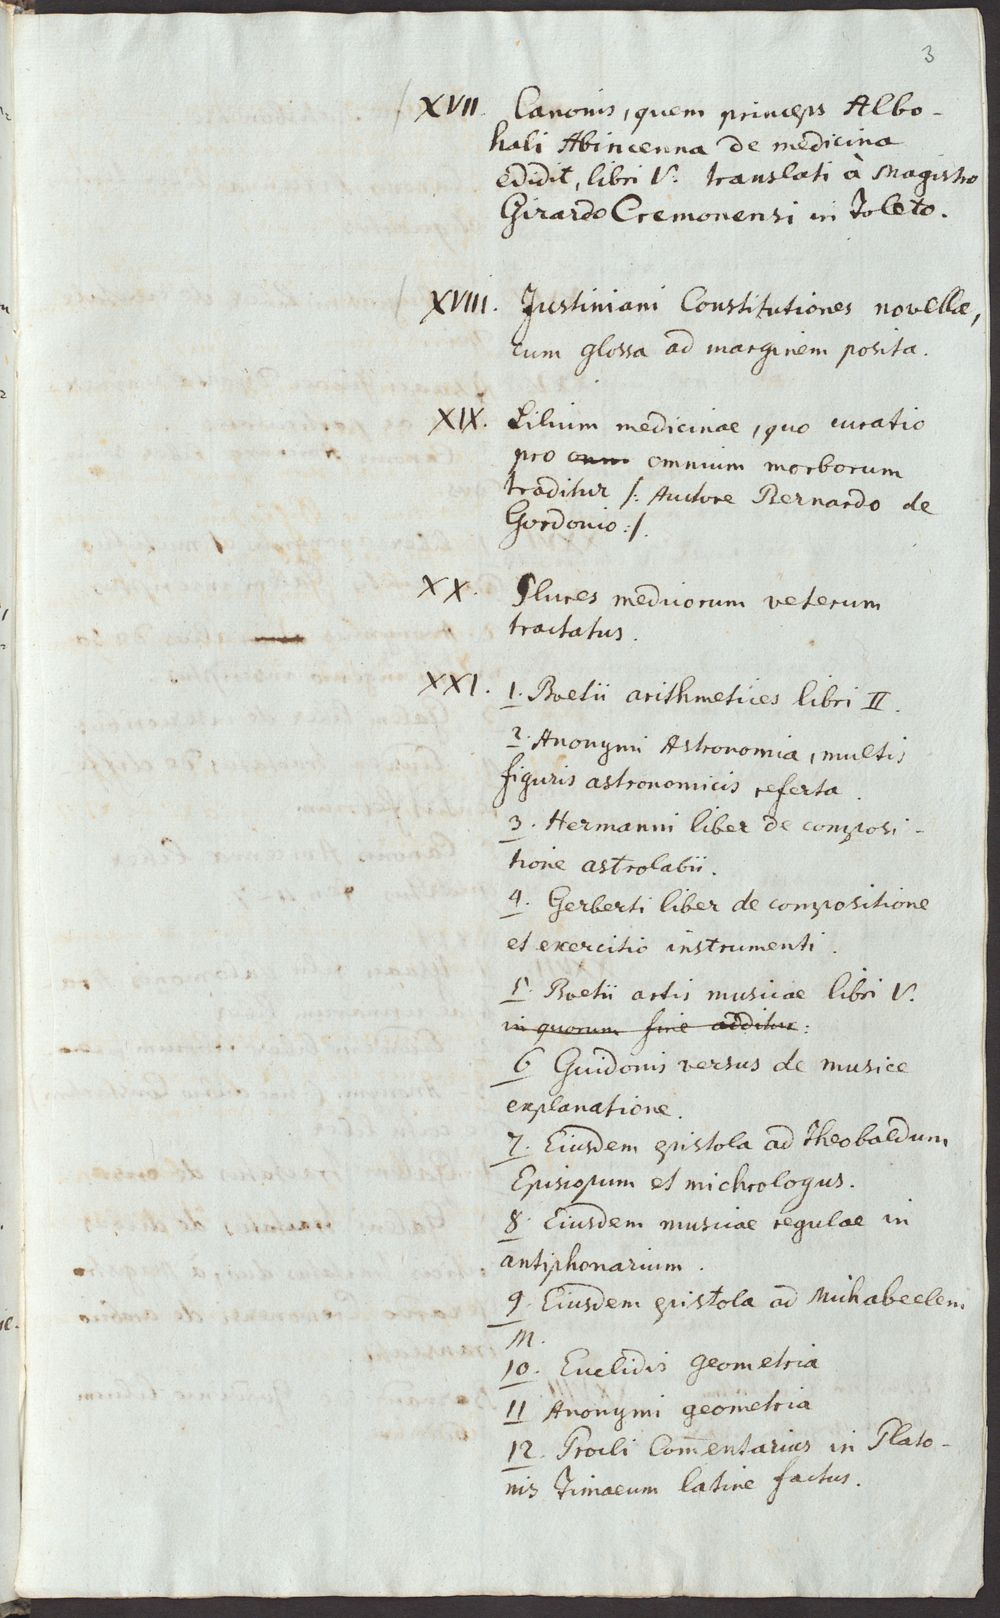 3
XVII. Canonis, quem princeps Albo-
hali Abincenna de medicina
edidit, libri V. translati à Magistro
Girardo Cremonensi in Toleto.
XVIII. Justiniani Constitutiones novellæ,
cum glossa ad marginem posita.
XIX. Lilium medicinae, quo curatio
pro omni omnium morborum
traditur /: Auctore Bernardo de
Gordonio :/.
XX. Plures medicorum veterum
tractatus.
XXI. 1. Boetii arithmetices libri II.
2. Anonymi Astronomia, multis
figuris astronomicis referta.
3. Hermanni liber de composi-
tione astrolabii.
4. Gerberti liber de compositione
et exercitio instrumenti.
5. Boetii artis musicae libri V.
in quorum fine additur:
6 Guidonis versus de musice
explanatione.
7. Eiusdem epistola ad Theobaldum
Episcopum et michrologus.
8. Eiusdem musicae regulae in
antiphonarium.
9. Eiusdem epistola ad Michaheelem
M.
10. Euclidis geometria
11 Anonymi geometria
12. Procli Com̄entarius in Plato-
nis Timaeum latine factus.